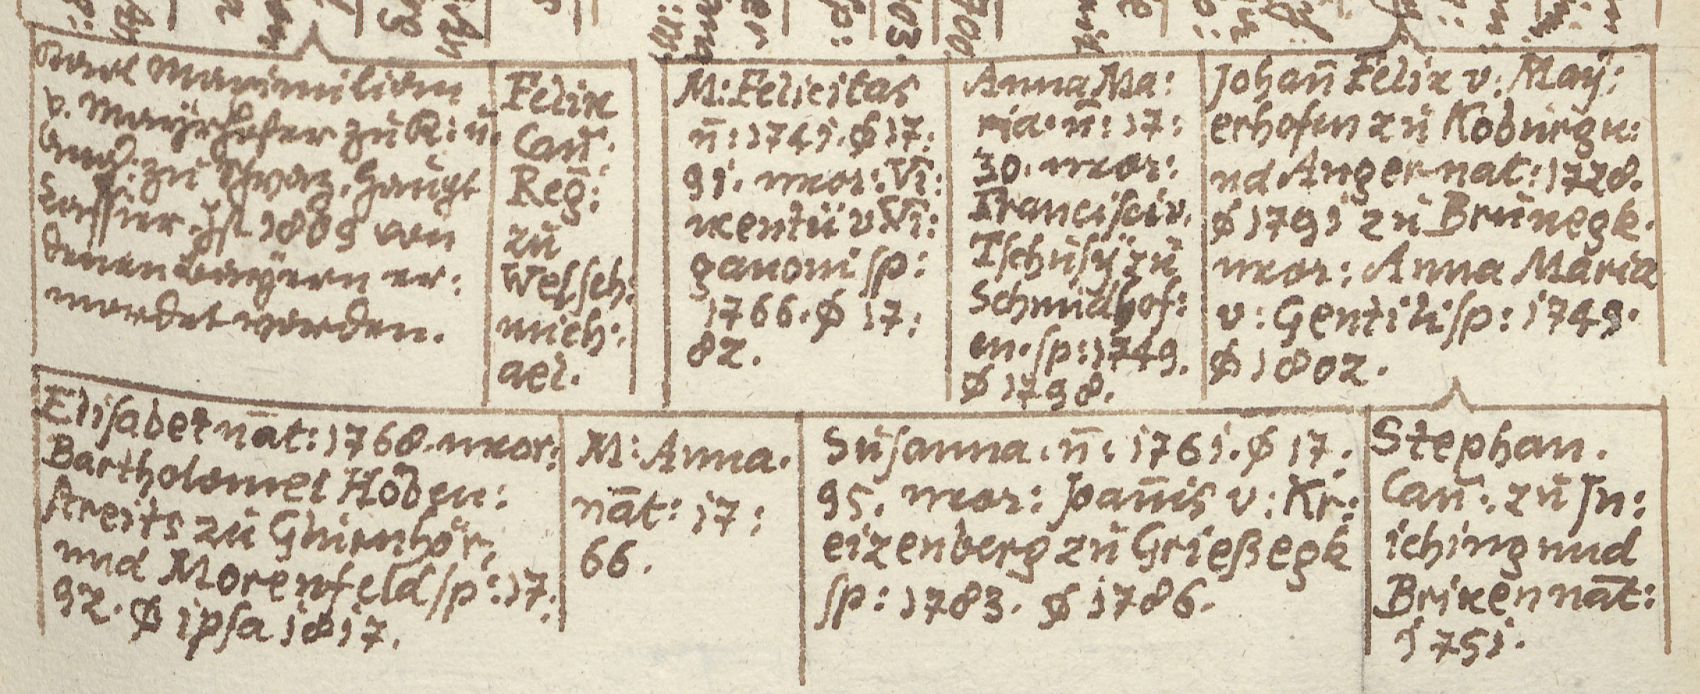 Karl Maximiliam
v. Mayrhofer zu K: ū.
Land: zu Schwaz, Haupt
Cassier. Ist 1809 von
denen Bayern er:
mordet worden.
Felix
Can̄.
Reg:
zu
Welsch:
mich:
ael.
M: Felicitas
n̄: 1741. ∅ 17:
91. uxor: Vi:
xentii v Vi:
ganoni sp:
1766. ∅ 17:
82.
Anna Ma:
ria. n̄: 17:
30. uxor:
Francisci v.
Tschusÿ zu
Schmidhof:
en. sp: 1749.
∅ 1798.
Johan̄ Felix v. Maÿ:
erhofen zu Koburg u:
nd Anger nat: 1728.
∅ 1791 zu Brunegk.
uxor: Anna Maria
v: Gentili sp: 1749.
∅ 1802.
Elisabet nāt: 1768. uxor:
Bartholomei Höben:
streits zu
und Morenfeld sp: 17:
92. ∅ ipsa 1817.
M: Anna.
nāt: 17:
66.
Susanna. n̄: 1761. ∅ 17:
95. uxor: Joan̄is v: Kr:
eizenberg zu Grießegk
sp: 1783. ∅ 1786.
Stephan.
Can̄. zu In:
iching und
Brixen nāt:
1751.